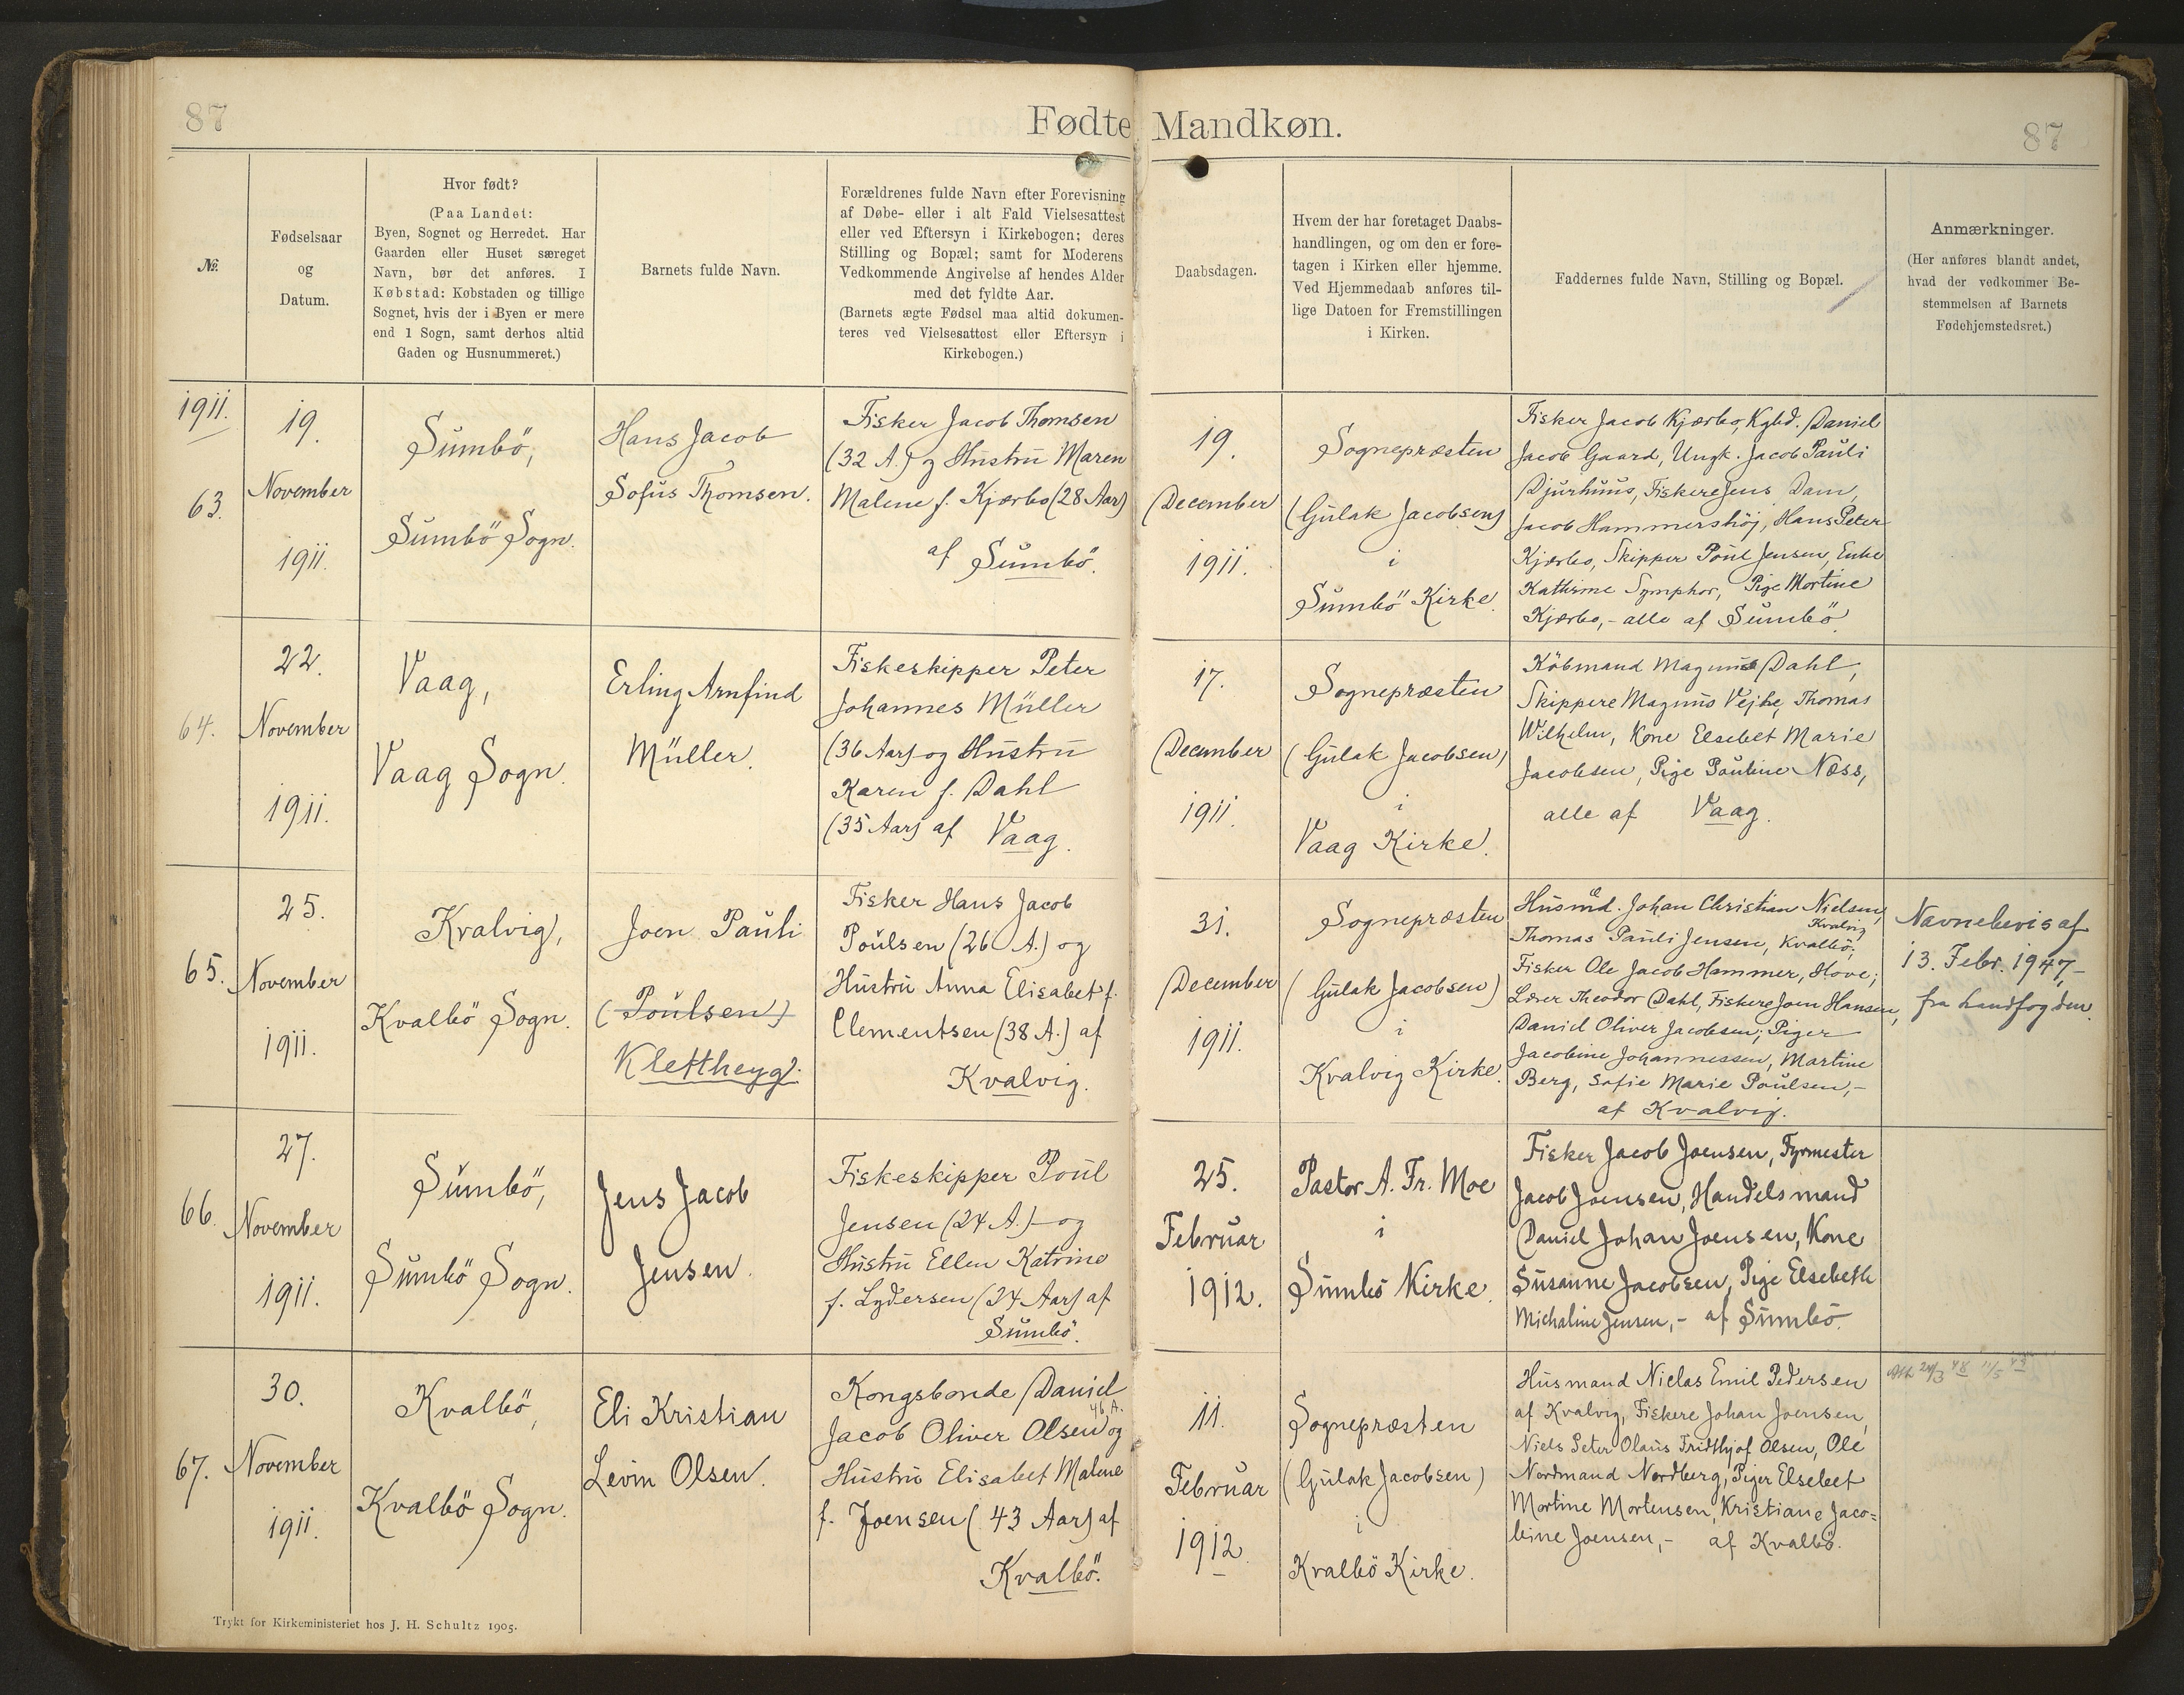 87
Fødte Mandkøn.
87
No.
Fødselsaar
og
Datum.
Hvor født?
(Paa Landet:
Byen, Sognet og Herredet. Har
Gaarden eller Huset særeget
Navn, bør det anføres. I
Købstad: Købstaden og tillige
Sognet, hvis der i Byen er mere
end 1 Sogn, samt derhos altid
Gaden og Husnummeret.)
Barnets fulde Navn.
Forældrenes fulde Navn efter Forevisning
af Døbe- eller i alt Fald Vielsesattest
eller ved Eftersyn i Kirkebogen; deres
Stilling og Bopæl; samt for Moderens
Vedkommende Angivelse af hendes Alder
med det fyldte Aar.
(Barnets ægte Fødsel maa altid dokumen-
teres ved Vielsesattest eller Eftersyn i
Kirkebogen.)
Daabsdagen.
Hvem der har foretaget Daabs-
handlingen, og om den er fore-
tagen i Kirken eller hjemme.
Ved Hjemmedaab anføres til-
lige Datoen for Fremstillingen
i Kirken.
Faddernes fulde Navn, Stilling og Bopæl.
Anmærkninger.
(Her anføres blandt andet,
hvad der vedkommer Be-
stemmelsen af Barnets
Fødehjemstedsret.)
1911.
63.
19.
November
1911.
Sumbö,
Sumbö Sogn.
Hans Jacob
Sofus Thomsen.
Fisker Jacob Thomsen
(32 A.) og Hustru Maren
Malene f. Kjærbo (28 Aar)
af Sumbö.
19.
December
1911.
Sognepræsten
(Gulak Jacobsen)
i
Sumbö Kirke.
Fisker Jacob Kjærbo, Kgbd. Daniel
Jacob Gaard, Ungk. Jacob Pauli
Djurhuus, Fiskere Jens Dam,
Jacob Hammershöj, Hans Peter
Kjærbo, Skipper Poul Jensen, Enke
Kathrine Symphor, Pige Mortine
Kjærbo, - alle af Sumbö.
64.
22.
November
1911.
Vaag,
Vaag Sogn.
Erling Arnfind
Müller.
Fiskeskipper Peter
Johannes Müller
(36 Aar) og Hustru
Karen f. Dahl
(35 Aar) af Vaag.
17.
December
1911.
Sognepræsten
(Gulak Jacobsen)
i
Vaag Kirke.
Köbmand Magnus Dahl,
Skippere Magnus Vejhe, Thomas
Wilhelm, Kone Elsebet Marie
Jacobsen, Pige Pouline Næss,
alle af Vaag.
65.
25.
November
1911.
Kvalvig,
Kvalbö Sogn.
Joen Pauli
(Poulsen)
Klettheyg.
Fisker Hans Jacob
Poulsen (26 A.) og
Hustru Anna Elisabet f.
Clementsen (38 A.) af
Kvalvig.
31.
December
1911.
Sognepræsten
(Gulak Jacobsen)
i
Kvalvig Kirke.
Husmd. Johan Christian Nielsen,
Kvalvig
Thomas Pauli Jensen, Kvalbö;
Fisker Ole Jacob Hammer, Hove;
Lærer Theodor Dahl, Fiskere Joen Hansen,
Daniel Oliver Jacobsen; Piger
Jacobine Johannessen, Martine
Berg, Sofie Marie Poulsen, -
af Kvalvig.
Navnebevis af
13. Febr. 1947,
fra Landfogden.
66.
27.
November
1911.
Sumbö,
Sumbö Sogn.
Jens Jacob
Jensen.
Fiskeskipper Poul
Jensen (24 A.) og
Hustru Ellen Katrine
f. Lydersen (24 Aar) af
Sumbö.
25.
Februar
1912.
Pastor A. Fr. Moe
i
Sumbö Kirke.
Fisker Jacob Joensen, Fyrmester
Jacob Joensen, Handelsmand
Daniel Johan Joensen, Kone
Susanne Jacobsen, Pige Elsebeth
Michaline Jensen, - af Sumbö.
67.
30.
November
1911.
Kvalbö,
Kvalbö Sogn.
Eli Kristian
Levin Olsen.
Kongsbonde Daniel
46 A.
Jacob Oliver Olsen og
Hustru Elisabet Malene
f. Joensen (43 Aar) af
Kvalbö.
11.
Februar
1912.
Sognepræsten
(Gulak Jacobsen)
i
Kvalbö Kirke.
Husmand Niclas Emil Pedersen
af Kvalvig, Fiskere Johan Joensen,
Niels Peter Olaus Fridthjof Olsen, Ole
Nordmand Nordberg, Piger Elsebet
Mortine Mortensen, Kristiane Jaco=
bine Joensen, - af Kvalbö.
24/3 48 11/5
Trykt for Kirkeministeriet hos J. H. Schultz 1905.